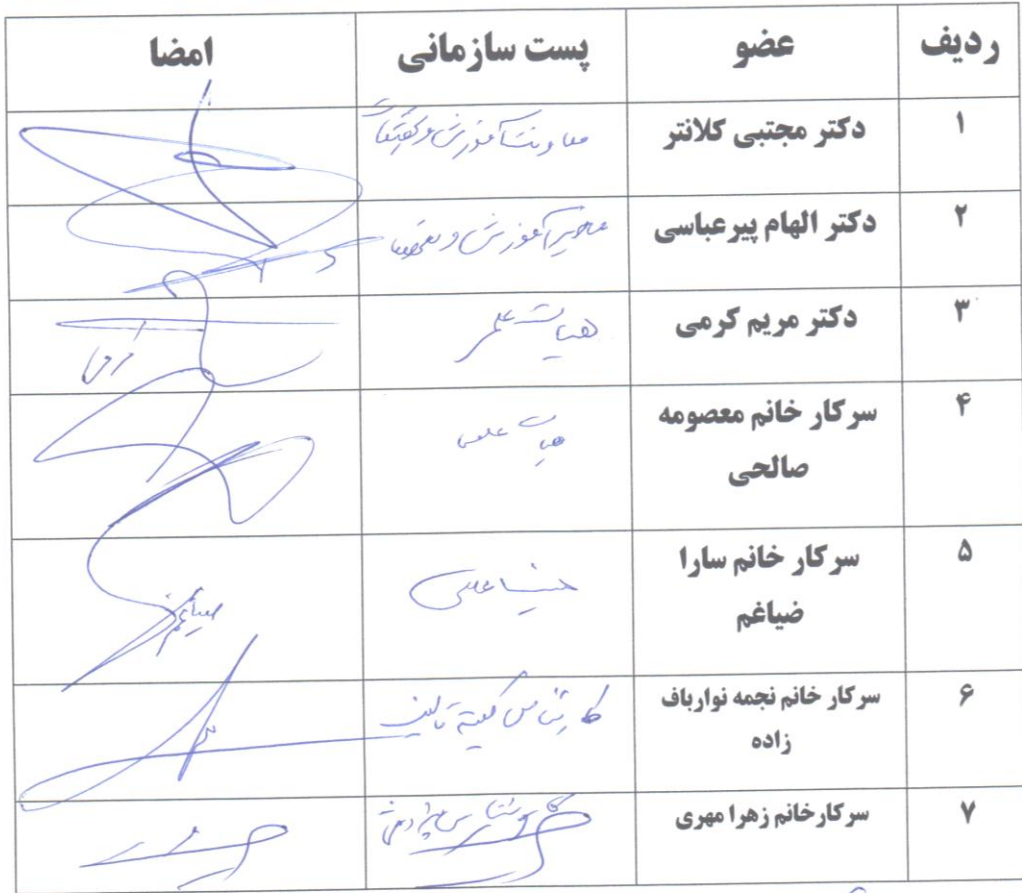 ردیف عضو پست سازمانی امضا
۱ دکتر مجتبی کلانتر معاونت آموزش و تحقیقات
۲ دکتر الهام پیرعباسی مدیر آموزش و تحقیقات
۳ دکتر مریم کرمی هیات علمی
۴ سرکار خانم معصومه
صالحی هیات علمی
۵ سرکار خانم سارا
ضیاغم هیات علمی ضیاغم
۶ سرکار خانم نجمه نوارباف
زاده کارشناس کمیته تالیف
۷ سرکارخانم زهرا مهری کارشناس